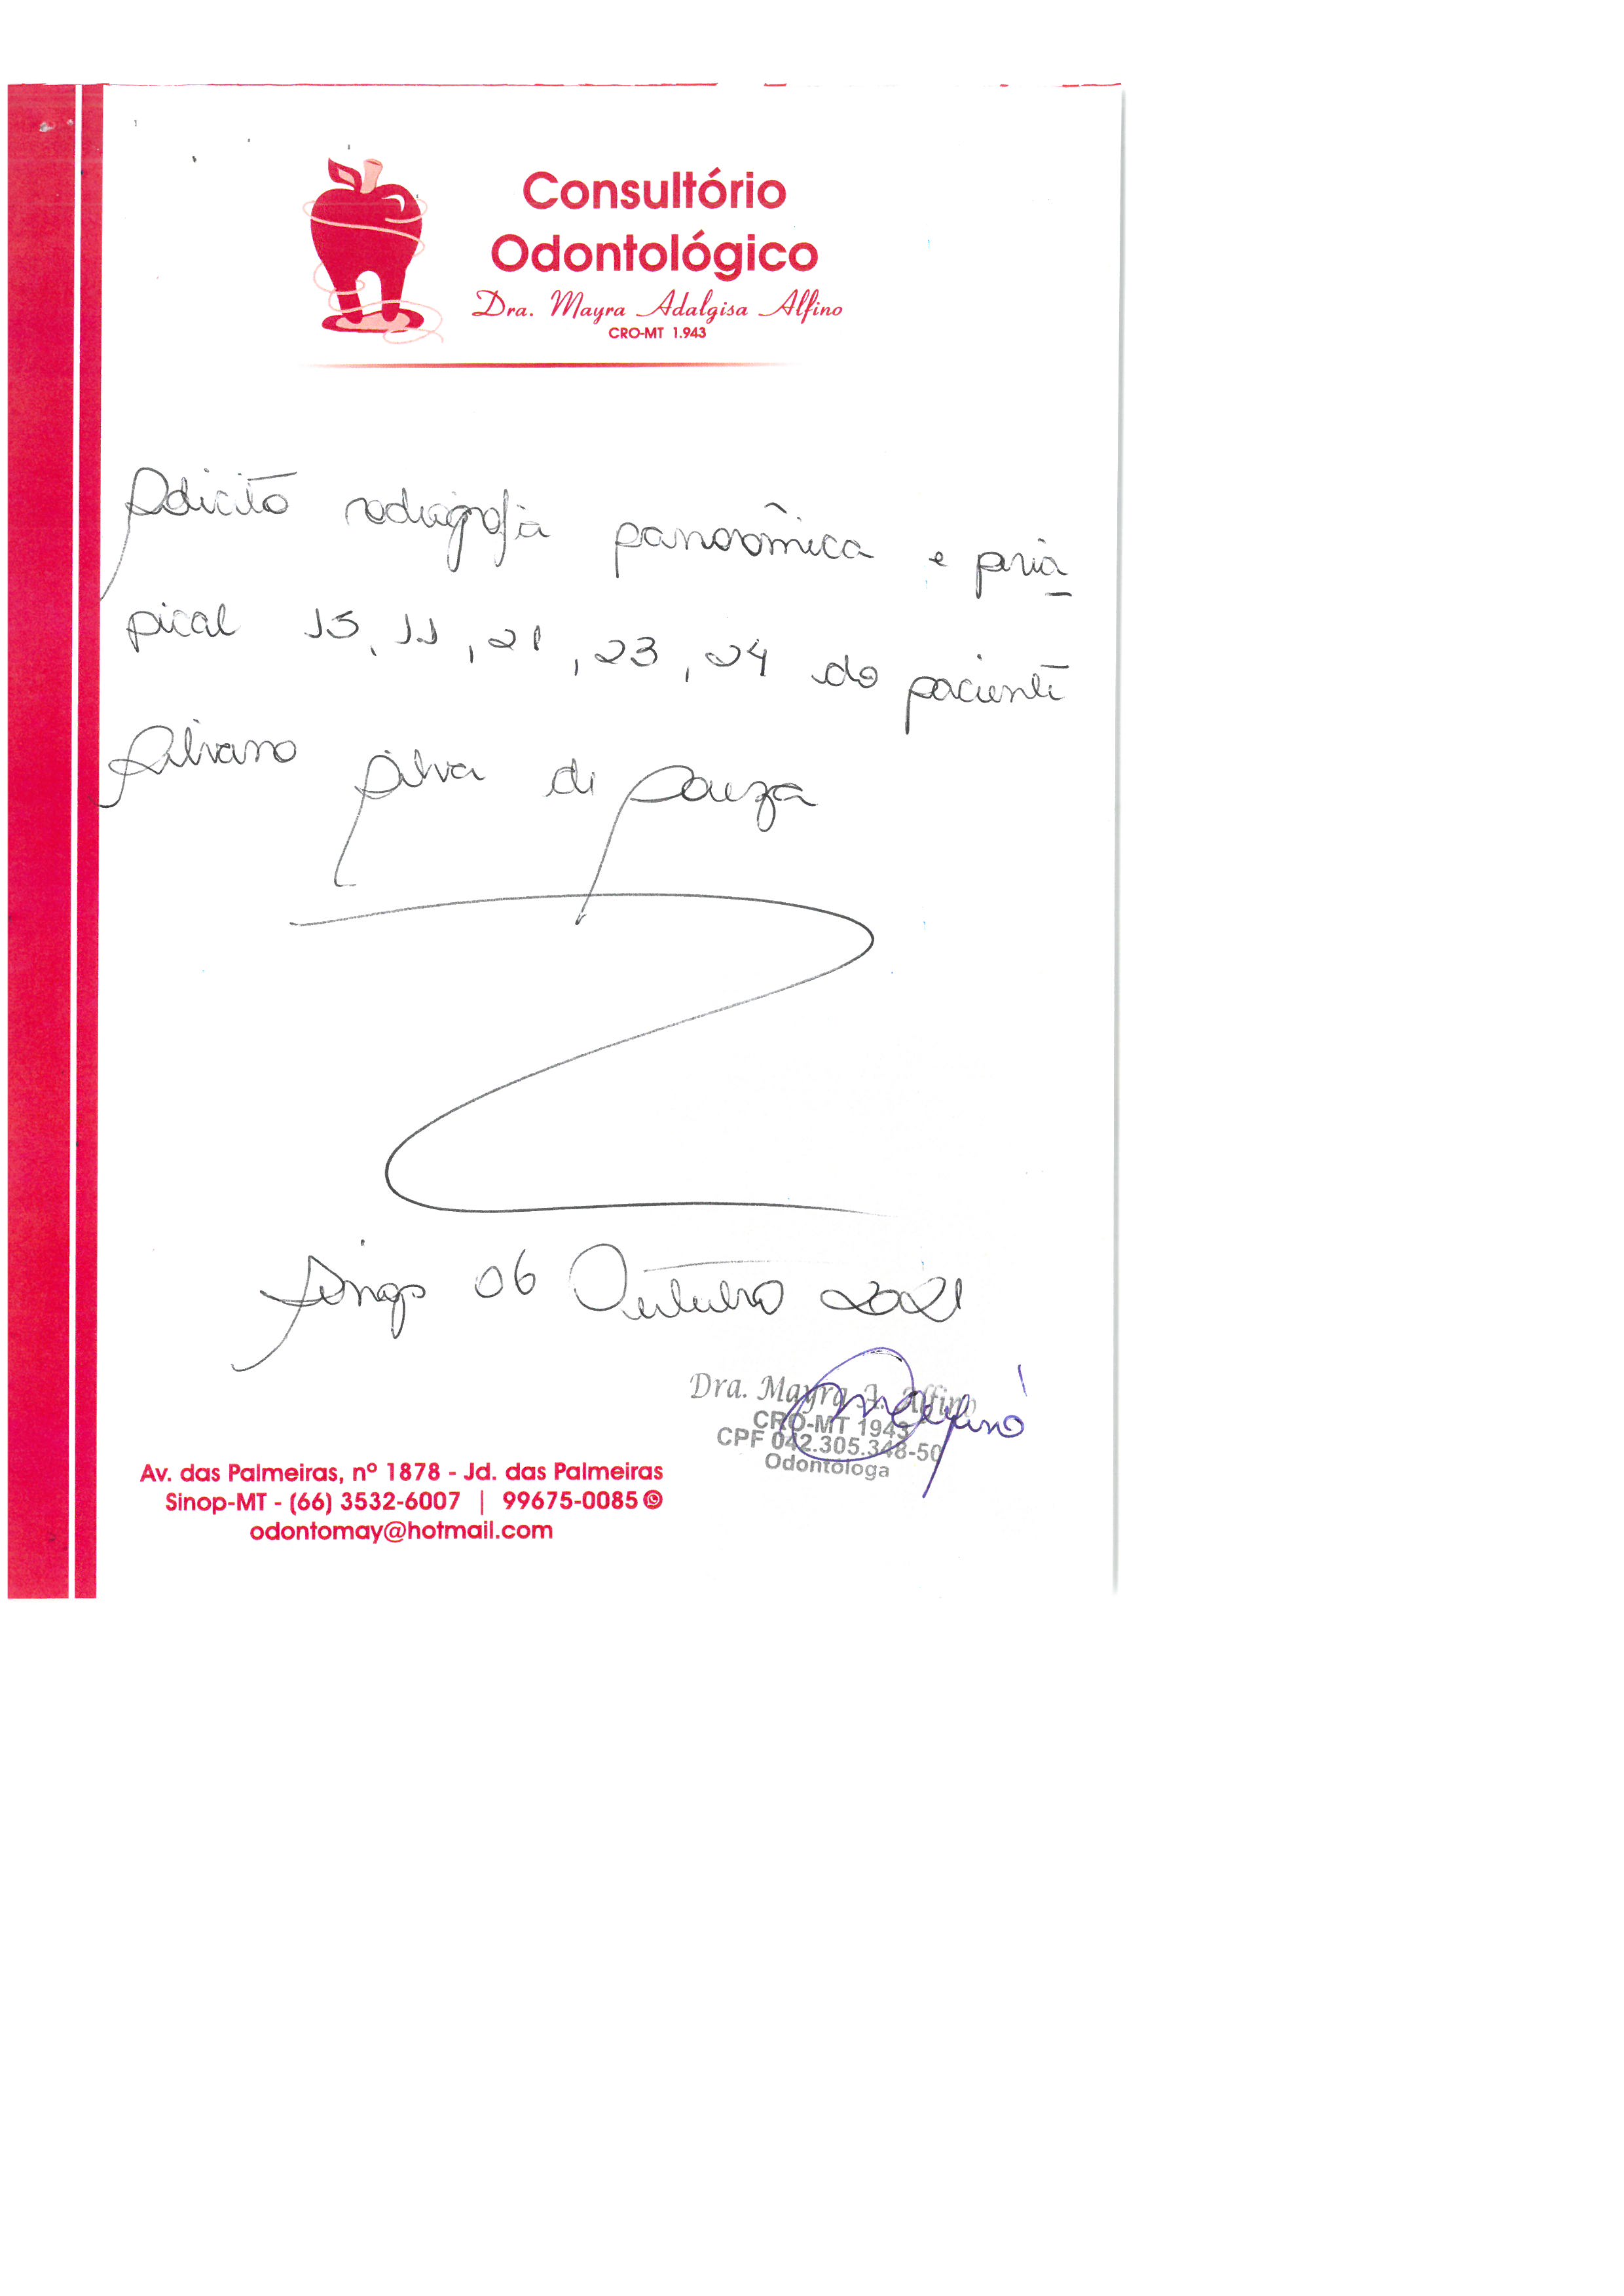 Consultório
Odontológico
Dra. Mayra Adalgisa Alfino
CRO-MT 1.943
Solicito radiografia panorâmica e peria
pical 15, 11, 21, 23, 24 do paciente
Silvano Silva de Souza
Sinop 06 Outubro 2021
Dra. Mayra A. Alfino
CRO-MT 1943
CPF 042.305.348-50
Odontóloga
Av. das Palmeiras, nº 1878 - Jd. das Palmeiras
Sinop-MT - (66) 3532-6007 | 99675-0085
odontomay@hotmail.com